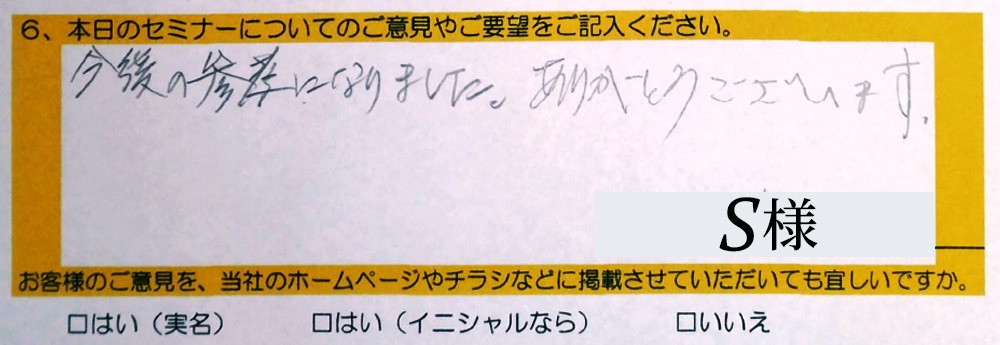 6、本日のセミナーについてのご意見やご要望をご記入ください。
今後の参考になりました。ありがとうございます。
S様
お客様のご意見を、当社のホームページやチラシなどに掲載させていただいても宜しいですか。
□はい（実名） □はい（イニシャルなら） □いいえ